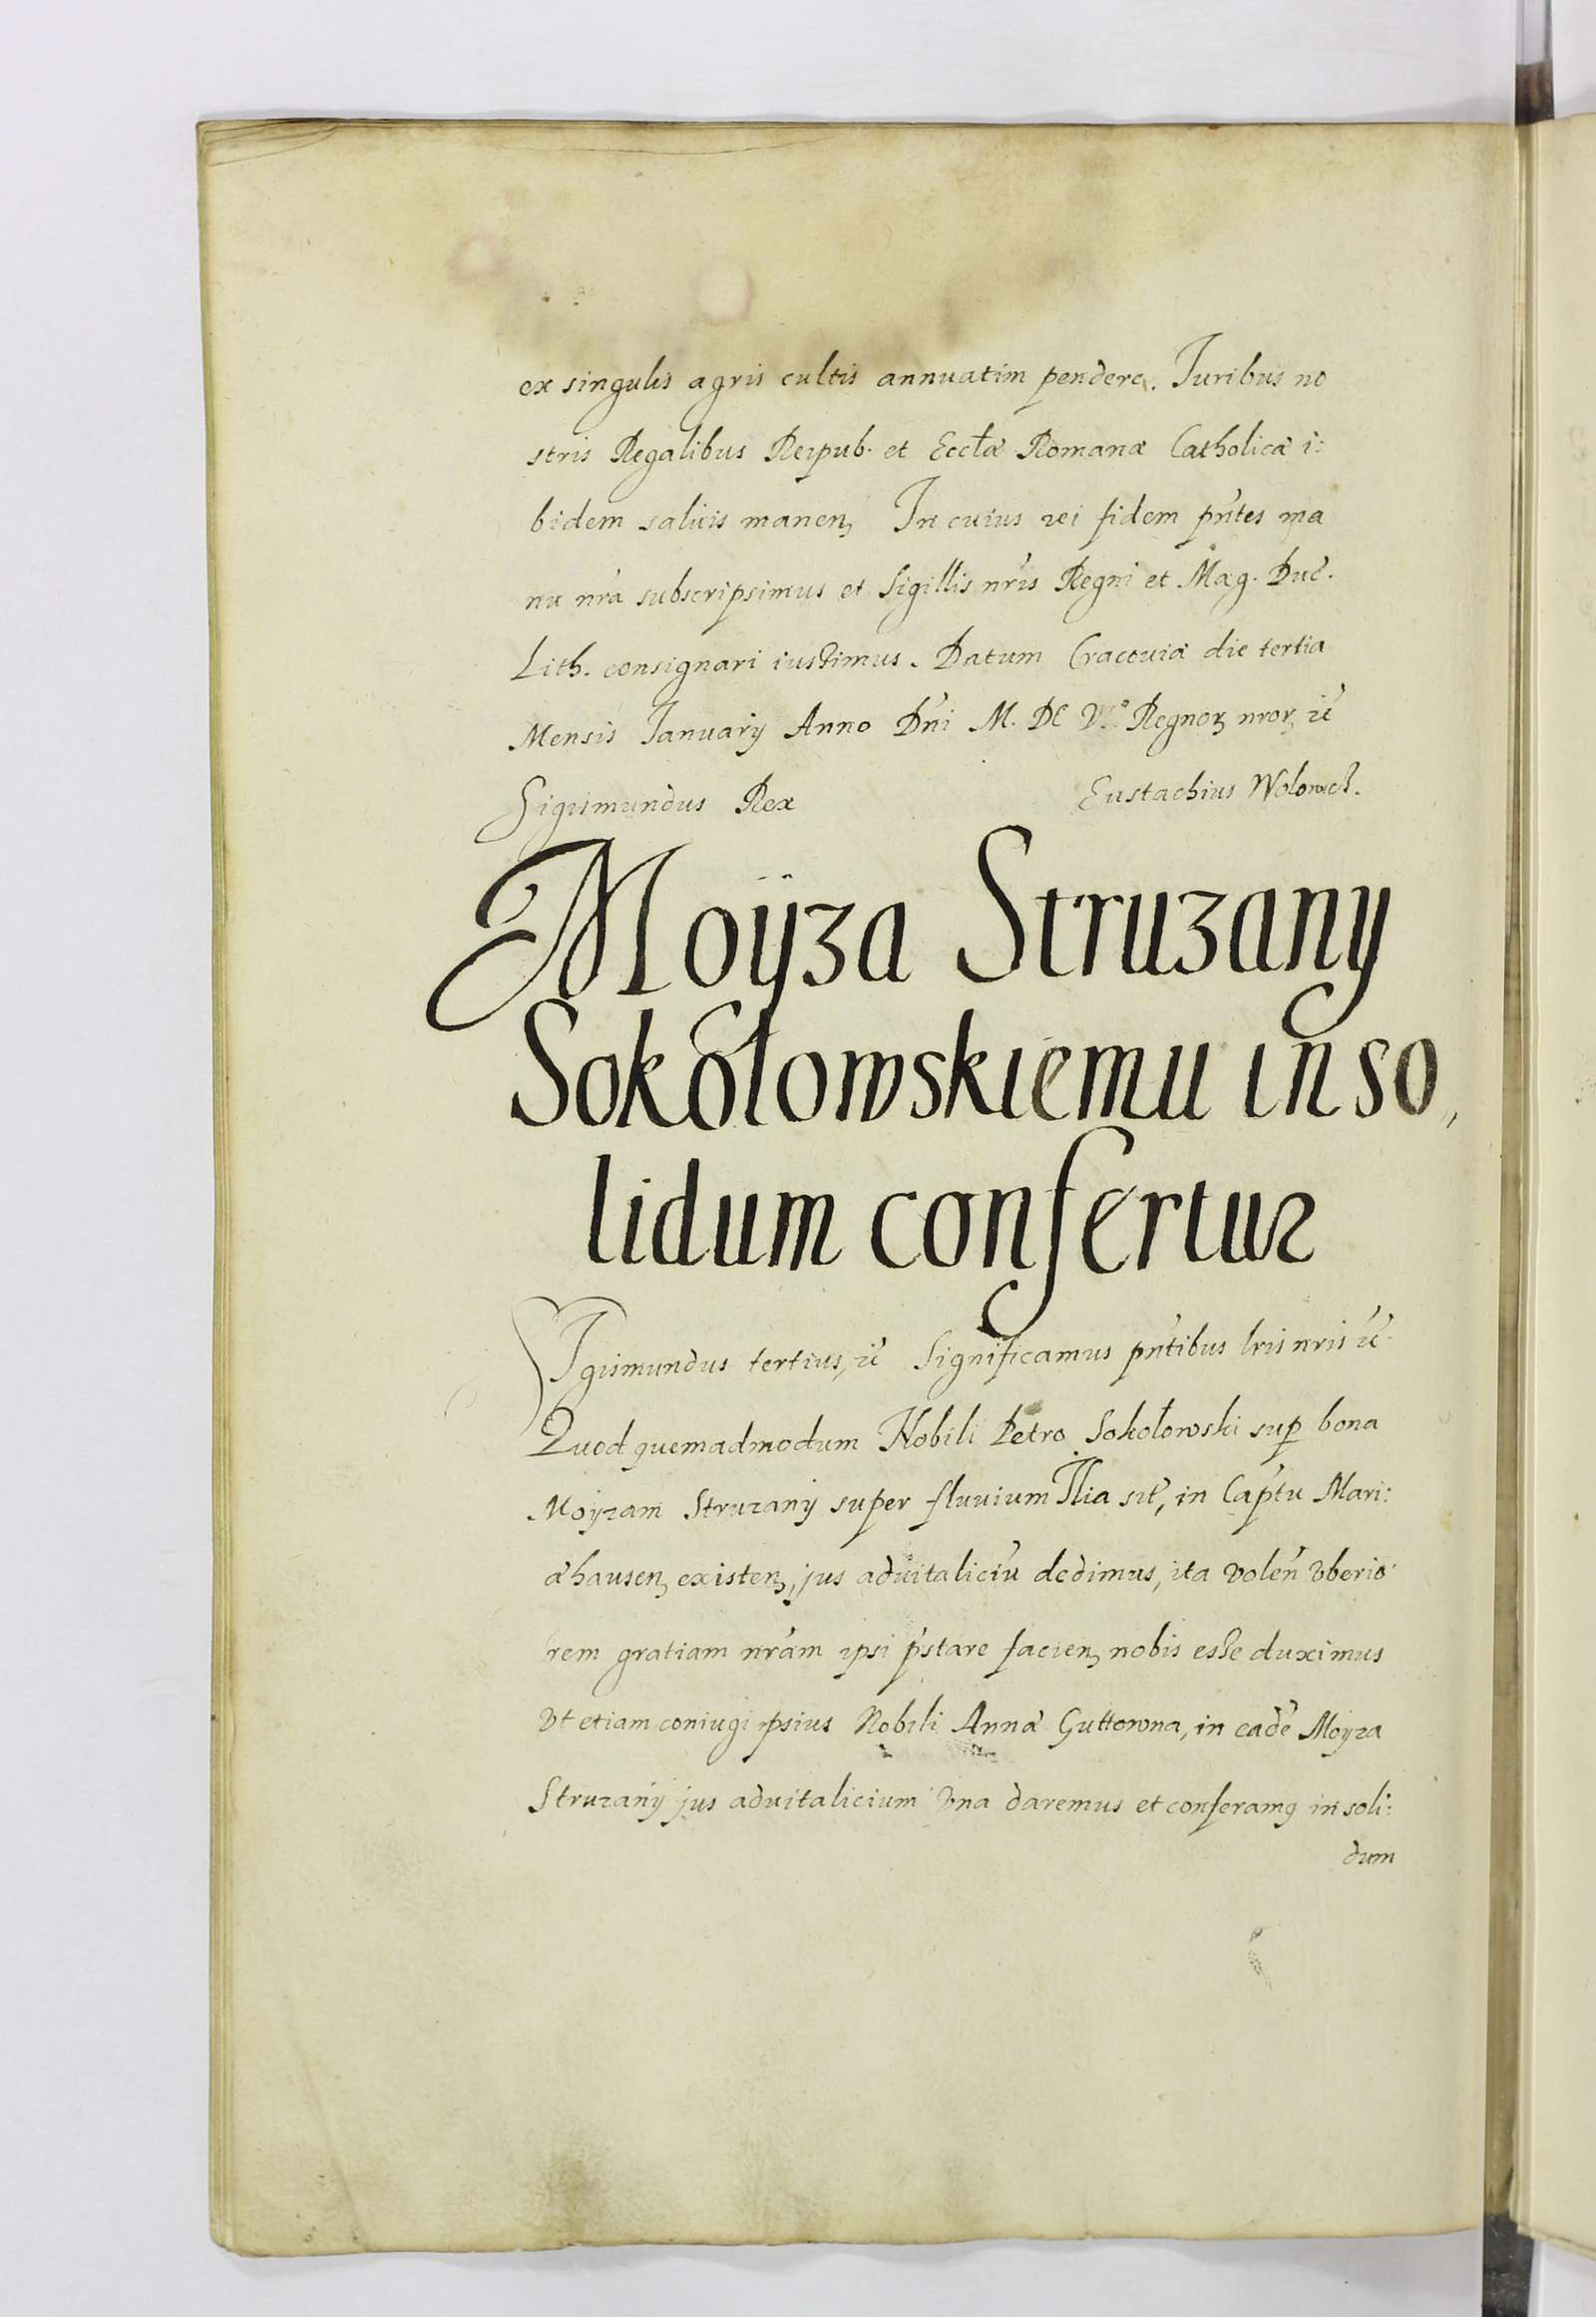 ex singulis agris cultis annuatim pendere. Juribus no
stris Regalibus Reipub. et Eccłæ Romanæ Catholicæ i:
bidem salvis manenꝫ In cuius rei fidem pñtes ma
nu nr̃a subscripsimus et Sigillis nr̃is Regni et Mag. Duc̃.
Lith. consignari iussimus. Datum Cracoviæ die tertia
Mensis Januarij Anno Dñi M. DC Regnorꝫ nrorꝫ ꝛc̃
Sigismundus Rex Eustachius Wolowicz.
Moÿza Struzany
Sokołowskiemu in so,
lidum confertur
Sigismundus tertius, ꝛc̃ Significamus pñtibus lris nris ꝛc̃.
Quod quemadmodum Nobili Petro Sokołowski suꝑ bona
Moyzam Struzany super fluvium Ilia sit̃, in Cap̃tu Mari:
æhausenꝫ existenꝫ, jus advitaliciũ dedimus, ita volen̄ vberio
rem gratiam nr̃am ipsi p̃stare facienꝫ nobis esse duximus
vt etiam coniugi ipsius Nobili Annæ Guttowna, in eadẽ Moyza
Struzany jus advitalicium vna daremus et conferamꝰ in soli:
dum